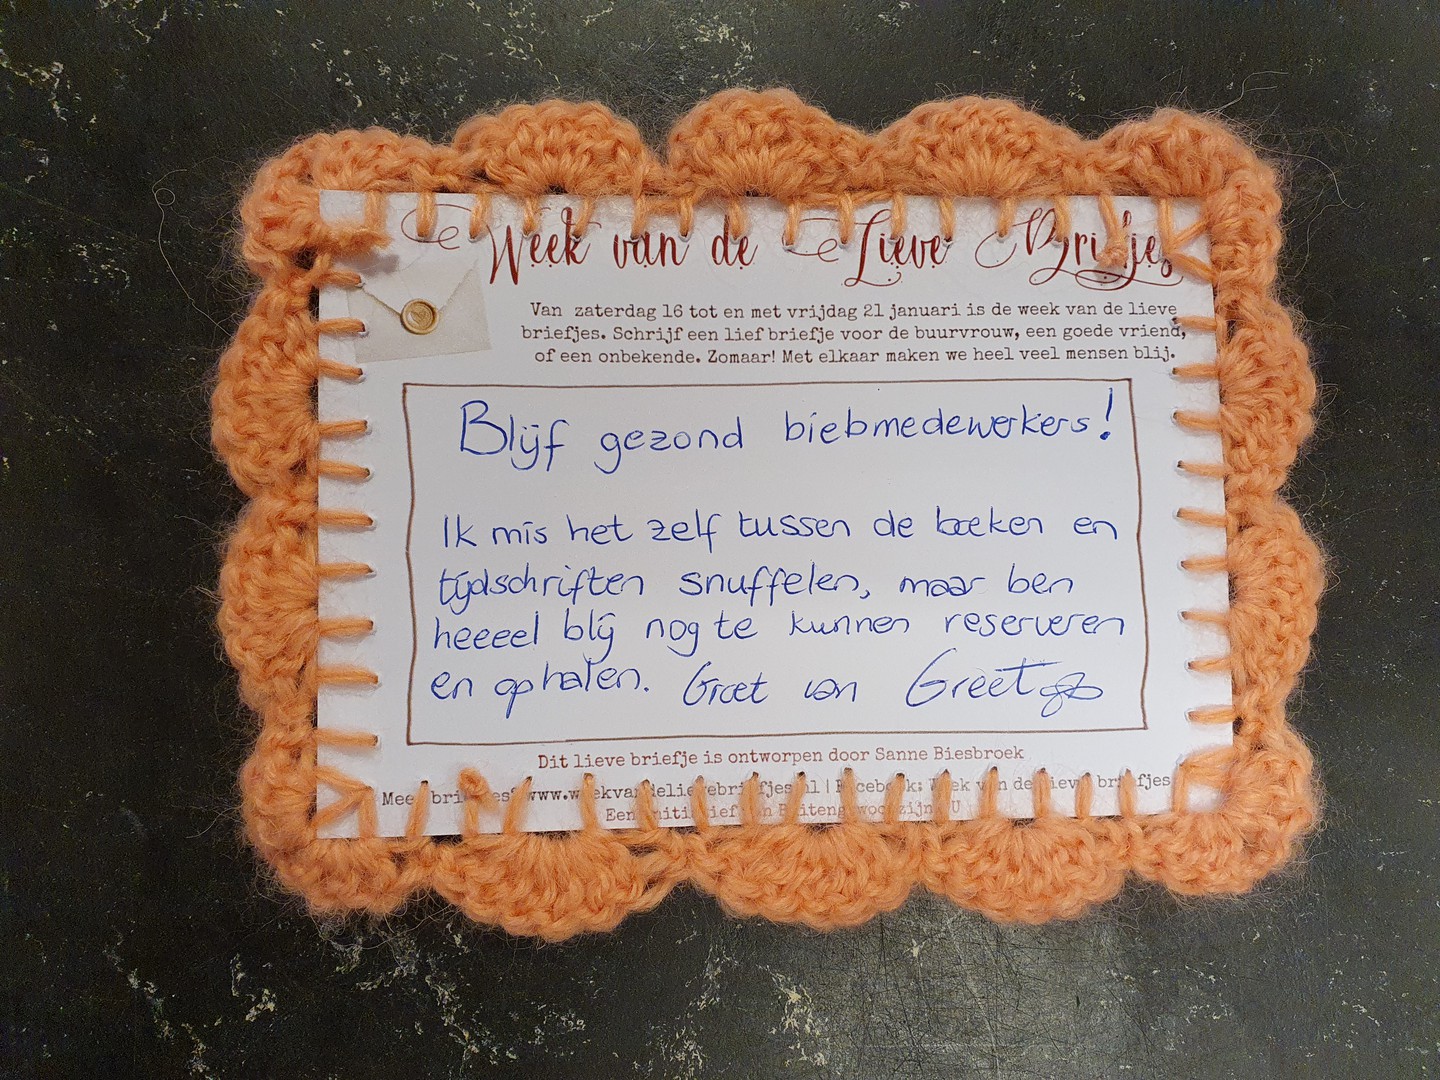 Week van de Lieve Briefjes
Van zaterdag 16 tot en met vrijdag 21 januari is de week van de lieve
briefjes. Schrijf een lief briefje voor de buurvrouw, een goede vriend,
of een onbekende. Zomaar! Met elkaar maken we heel veel mensen blij.
Blijf gezond biebmedewerkers!
Ik mis het zelf tussen de boeken en
tijdschriften snuffelen, maar ben
heeeel blij nog te kunnen reserveren
en ophalen. Groet van Greet
Dit lieve briefje is ontworpen door Sanne Biesbroek
Meer briefjes? www.weekvandelievebriefjes.nl | Facebook: Week van de lieve briefjes
Een initiatief van